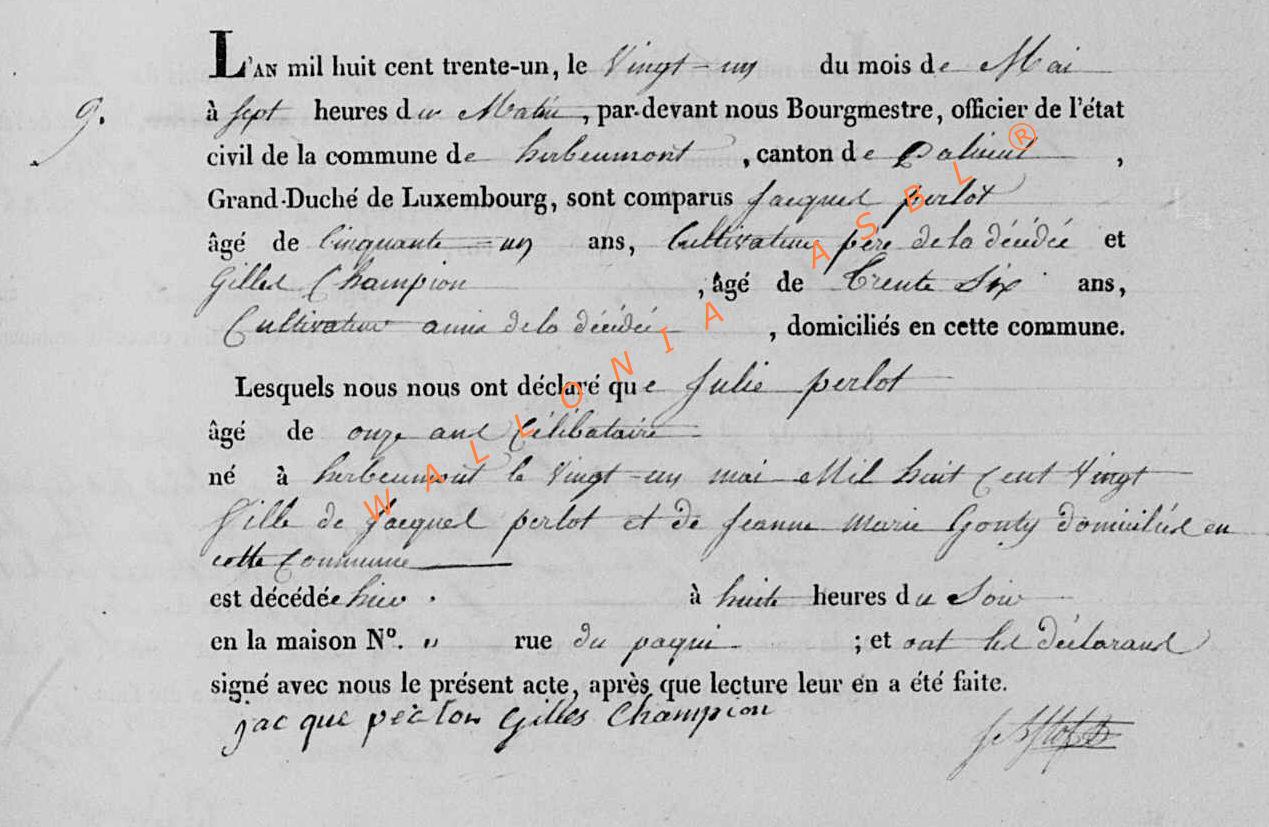 L'AN mil huit cent trente-un, le Vingt-un du mois de Mai
9. à Sept heures du Matin, par-devant nous Bourgmestre, officier de l'état
civil de la commune de herbeumont, canton de paliseul,
Grand-Duché de Luxembourg, sont comparus Jacques perlot
âgé de Cinquante-un ans, Cultivateur père de la décédée et
Gilles Champion, âgé de Trente Six ans,
Cultivateur amis de la décédée, domiciliés en cette commune.
Lesquels nous nous ont déclaré que Julie perlot
âgé de onze ans Célibataire
né à herbeumont le Vingt-un mai Mil huit Cent Vingt
fille de Jacques perlot et de Jeanne Marie Gouty domiciliés en
cette Commune
est décédée hier à huite heures du Soir
en la maison Nº. „ rue du paqui ; et ont les déclarans
signé avec nous le présent acte, après que lecture leur en a été faite.
jacque Gilles Champion
WALLONIA ASBL ®